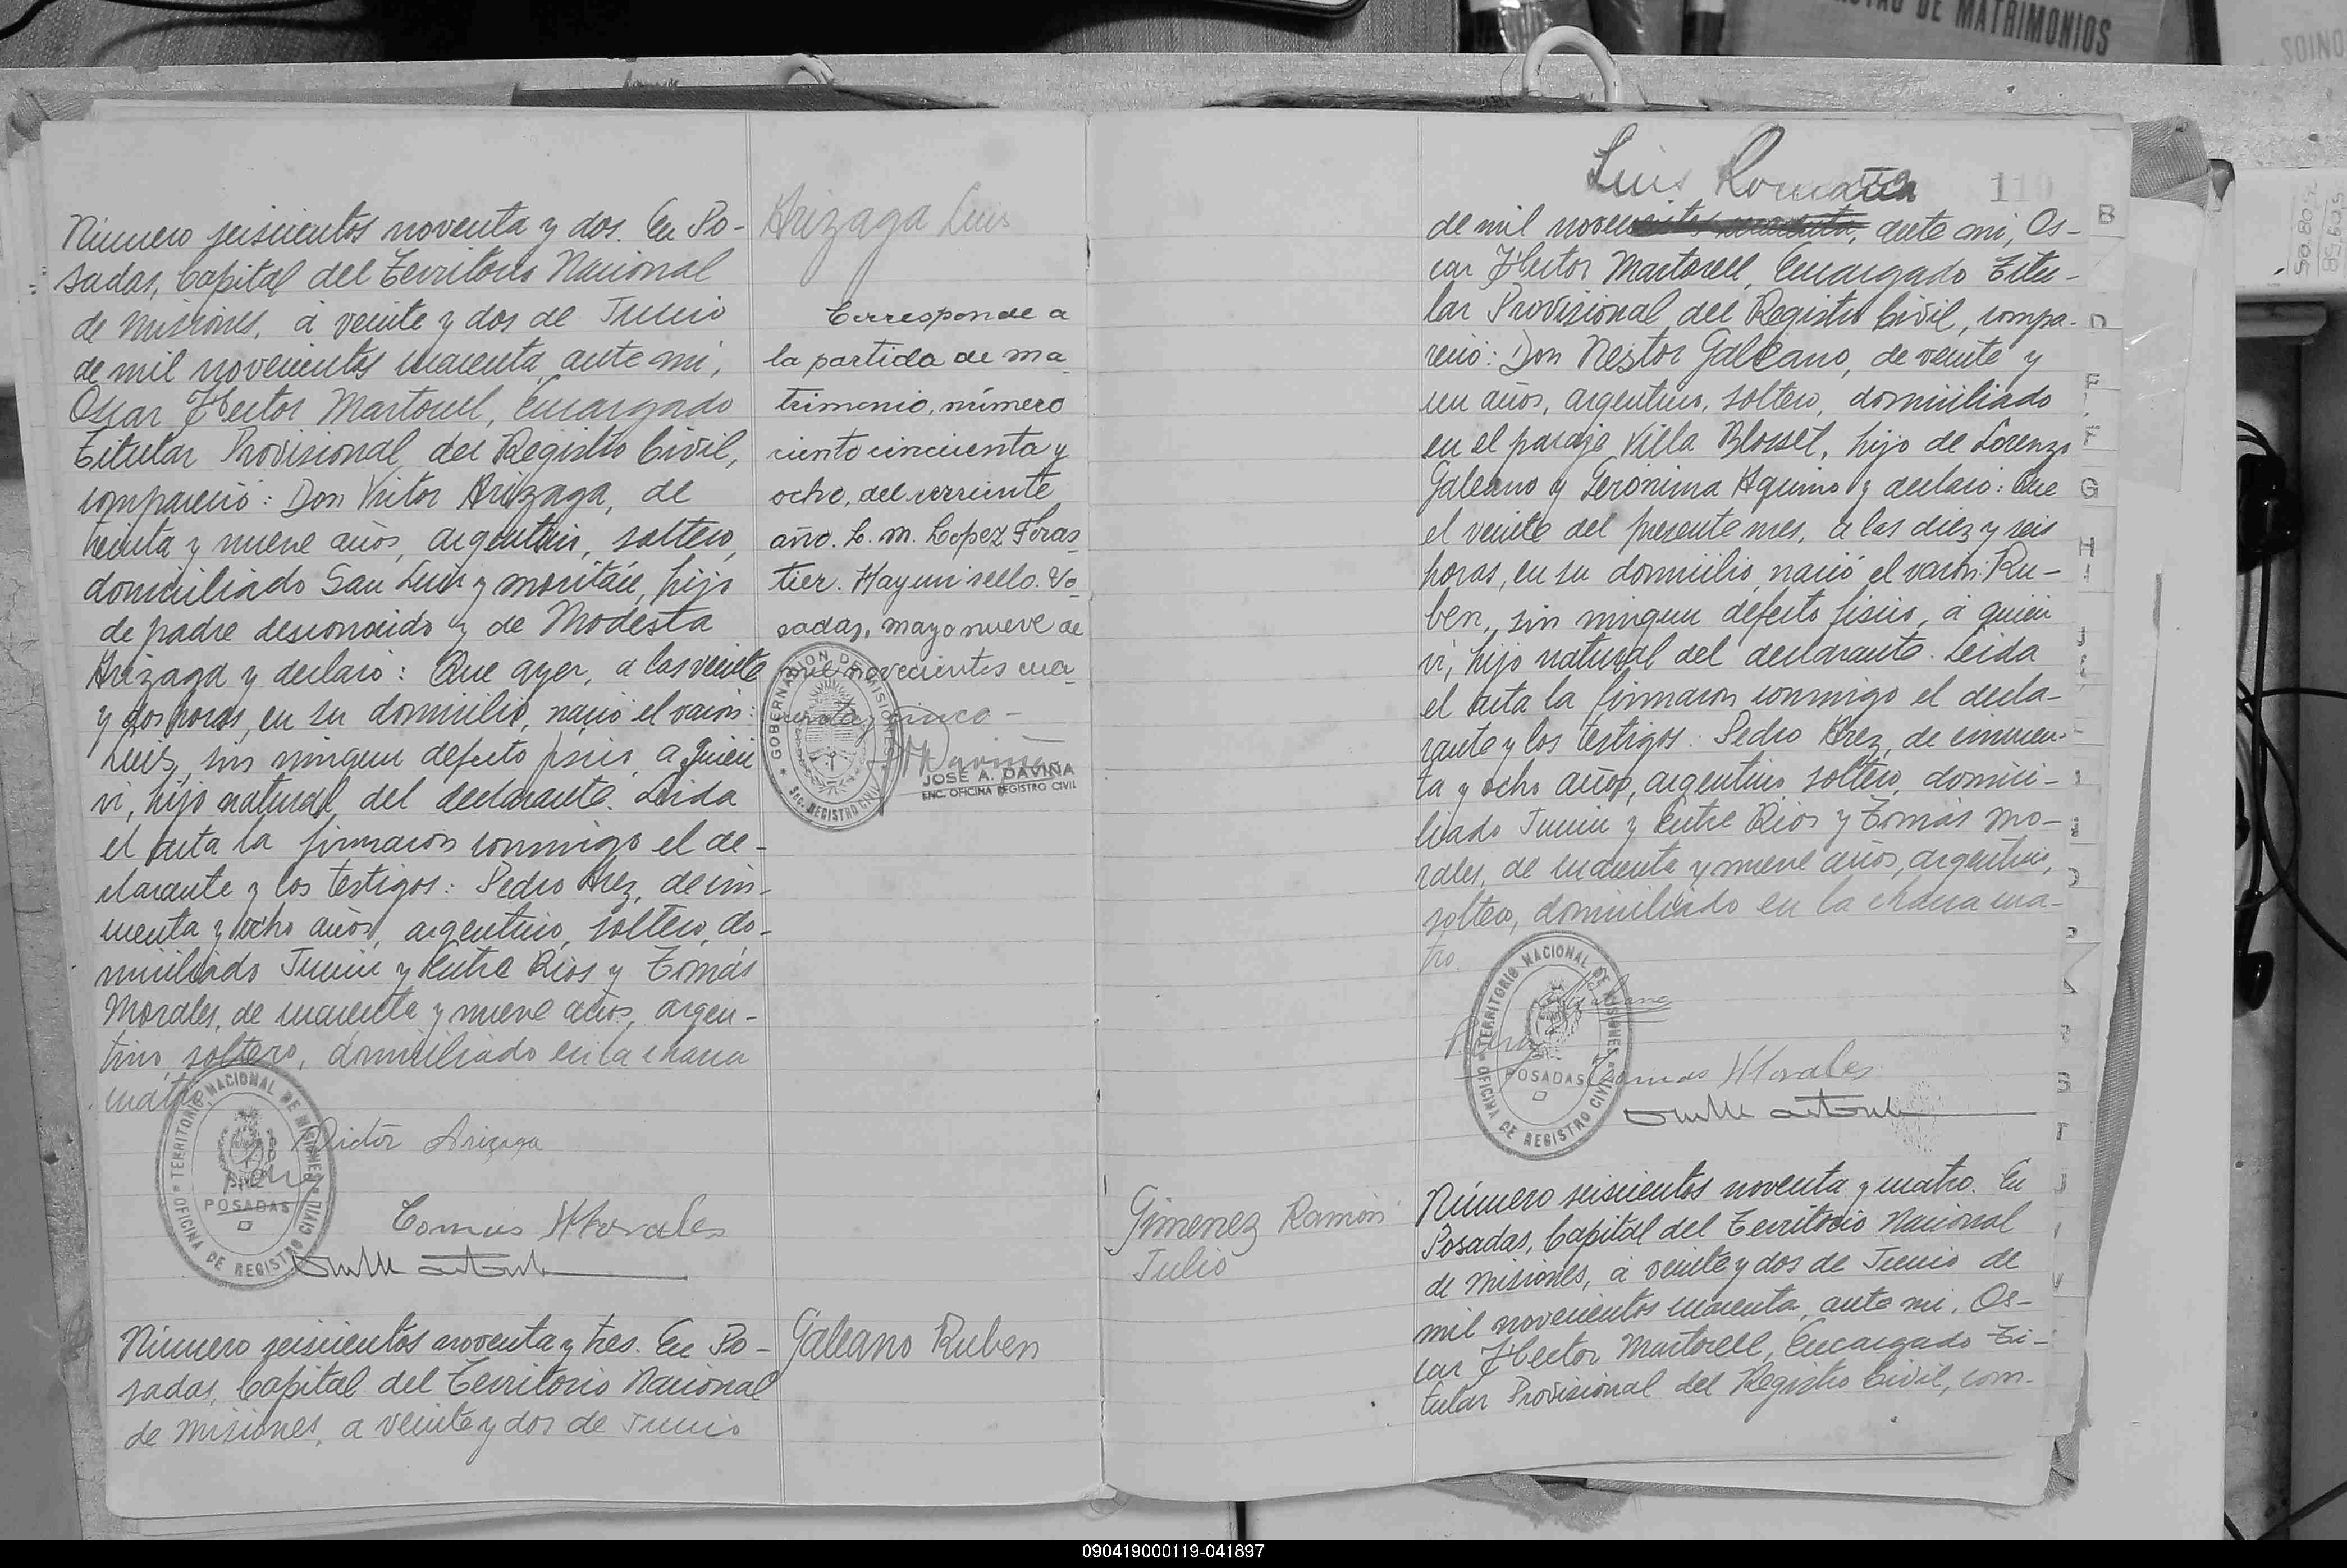 STRO DE MATRIMONIOS
Número seiscientos noventa y dos. En Po-
sadas, Capital del Territorio Nacional
de Misiones, á veinte y dos de Junio
de mil novecientos cuarenta, ante mi,
Oscar Hector Martorell, Encargado
Titular Provisional del Registro Civil,
compareció: Don Victor Arizaga, de
treinta y nueve años, argentino, soltero,
domiciliado San Luis y Moritán, hijo
de padre desconocido y de Modesta
Arizaga y declaró: Que ayer, a las veinte
y dos horas, en su domicilio, nació el varón:
Luis, sin ningun defecto fisico, a quien
vi, hijo natural del declarante. Leida
el acta la firmaron conmigo el de-
clarante y los testigos: Pedro Arez, de cin-
cuenta y ocho años, argentino, soltero, do-
miciliado Junin y Entre Rios y Tomás
Morales, de cuarenta y nueve años, argen-
tino, soltero, domiciliado en la chacra
cuatro.
Victor Arizaga
Tomas Morales
TERRITORIO NACIONAL DE MISIONES
POSADAS
OFICINA DE REGISTRO CIVIL
Número seiscientos noventa y tres. En Po-
sadas, Capital del Territorio Nacional
de Misiones, a veinte y dos de Junio
Arizaga Luis
Corresponde a
la partida de ma
trimonio, número
ciento cincuenta y
ocho, del corriente
año. L. M. Lopez Foras
tier. Hay un sello. Po
sadas, mayo nueve de
mil novecientos cua
renta y cinco-
GOBERNACION DE MISIONES
REGISTRO CIVIL
JOSE A. DAVIÑA
ENC. OFICINA REGISTRO CIVIL
Galeano Ruben
Luis Romaña
110
de mil novecientos cuarenta, ante mi, Os-
car Hector Martorell, Encargado Titu-
lar Provisional del Registro Civil, compa-
reció: Don Nestor Galeano, de veinte y
un años, argentino, soltero, domiciliado
en el paraje Villa Blosset, hijo de Lorenzo
Galeano y Gerónima Aquino y declaró: Que
el veinte del presente mes, a las diez y seis
horas, en su domicilio, nació el varón: Ru-
ben, sin ningun defecto fisico, á quien
vi, hijo natural del declarante. Leida
el acta la firmaron conmigo el decla-
rante y los testigos: Pedro Arez, de cincuen-
ta y ocho años, argentino, soltero, domici-
liado Junin y Entre Rios y Tomás Mo-
rales, de cuarenta y nueve años, argentino,
soltero, domiciliado en la chacra cua-
tro.
Galeano
Tomas Morales
TERRITORIO NACIONAL DE MISIONES
POSADAS
OFICINA DE REGISTRO CIVIL
Gimenez Ramón
Julio
Número seiscientos noventa y cuatro. En
Posadas, Capital del Territorio Nacional
de Misiones, á veinte y dos de Junio de
mil novecientos cuarenta, ante mi, Os-
car Hector Martorell, Encargado Ti-
tular Provisional del Registro Civil, com-
090419000119-041897